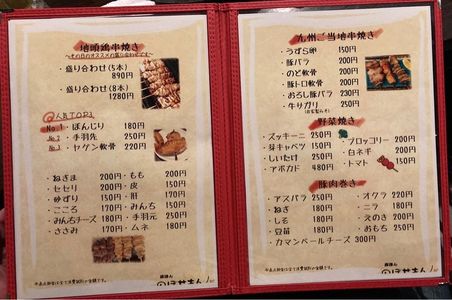 地頭鶏串焼き
・盛り合わせ(5本) 890円
・盛り合わせ(8本) 1280円
人気TOP3
No.1・ぼんじり 180円
No.2・手羽先 250円
No.3・ヤゲン軟骨 220円
・ねぎま 200円・もも 200円
・セセリ 200円・皮 150円
・砂ずり 150円・肝 170円
・こころ 170円・みんち 150円
・みんちチーズ 180円・手羽元 250円
・ささみ 170円・ムネ 180円
九州ご当地串焼き
・うずら卵 150円
・豚バラ 200円
・のど軟骨 150円
・豚トロ軟骨 200円
・おろし豚バラ 250円
・牛サガリ 250円
野菜焼き
・ズッキーニ 250円・ブロッコリー 200円
・芽キャベツ 150円・白ネギ 200円
・しいたけ 250円・トマト 150円
・アボカド 480円
豚肉巻き
・アスパラ 250円・オクラ 220円
・ねぎ 180円・ニラ 180円
・しそ 180円・えのき 200円
・豆苗 180円・おもち 250円
・カマンベールチーズ 300円